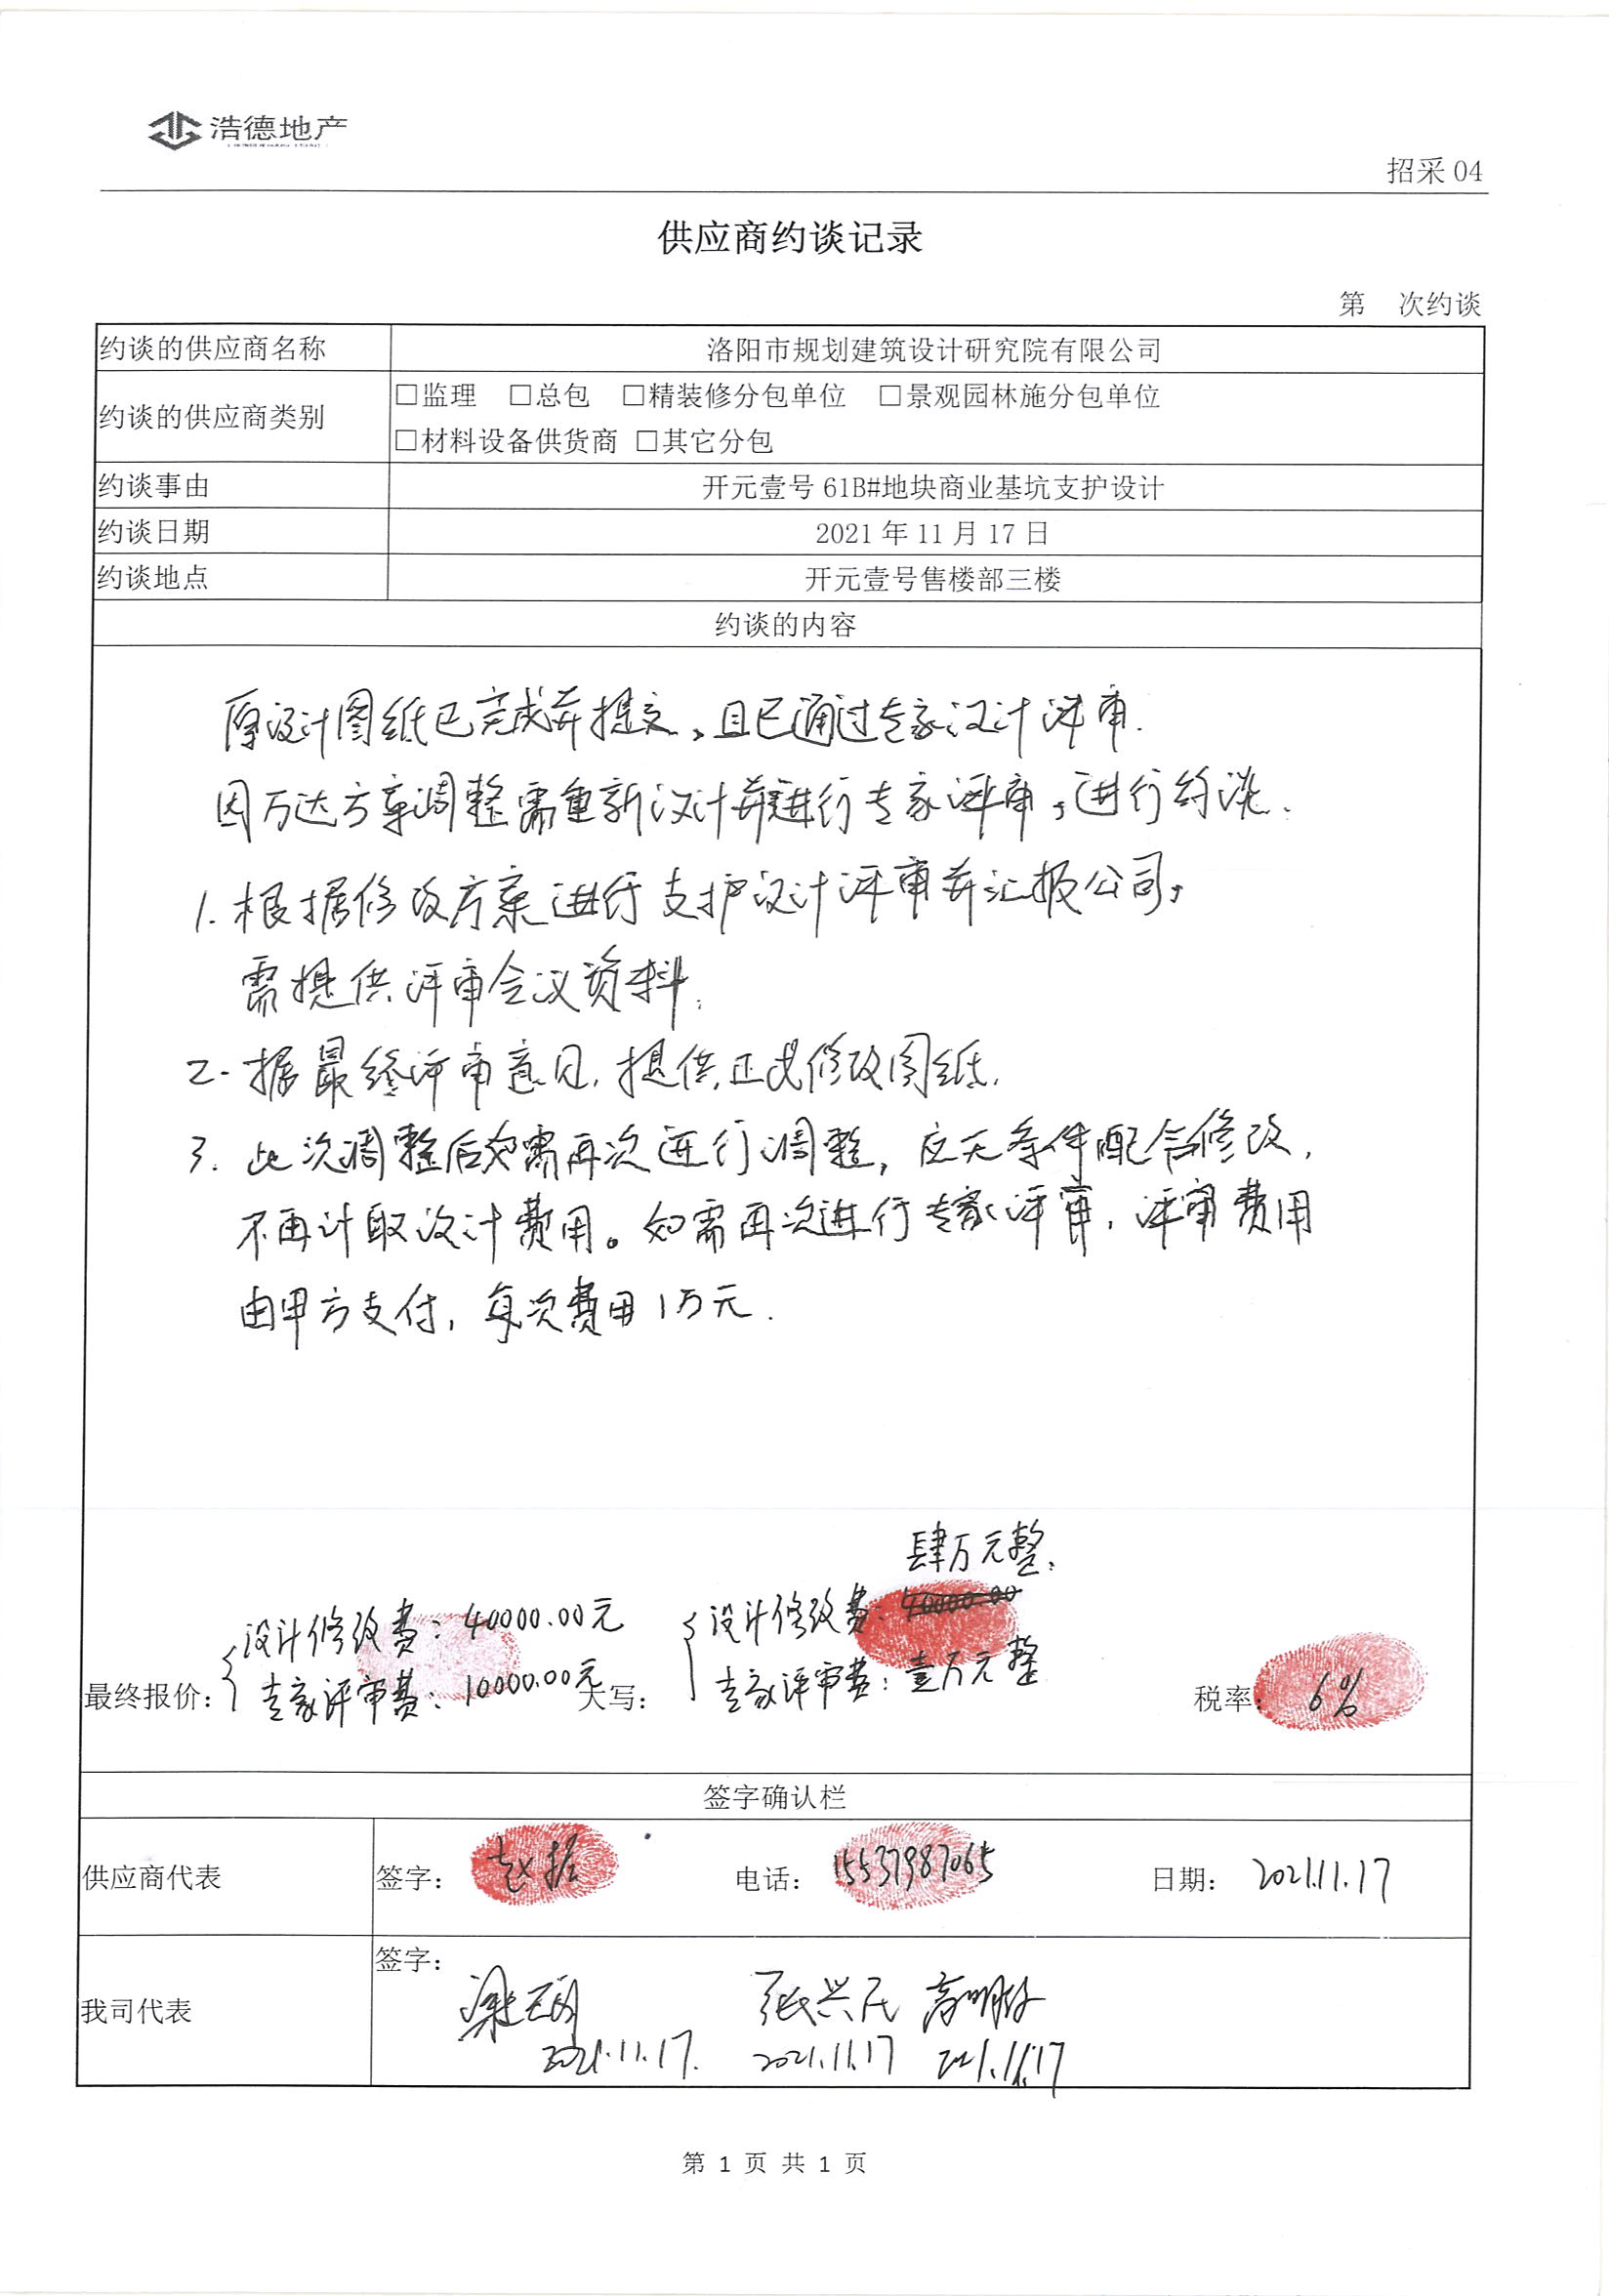 浩德地产
招采 04
供应商约谈记录
第 次约谈
约谈的供应商名称 洛阳市规划建筑设计研究院有限公司
约谈的供应商类别
□监理 □总包 □精装修分包单位 □景观园林施分包单位
□材料设备供货商 □其它分包
约谈事由 开元壹号 61B#地块商业基坑支护设计
约谈日期 2021 年 11 月 17 日
约谈地点 开元壹号售楼部三楼
约谈的内容
原设计图纸已完成并提交,且已通过专家设计评审.
因万达方案调整需重新设计并进行专家评审,进行约谈.
1. 根据修改方案进行支护设计评审并汇报公司,
需提供评审会议资料.
2. 据最终评审意见,提供正式修改图纸.
3. 此次调整后如需再次进行调整,应无条件配合修改,
不再计取设计费用。如需再次进行专家评审,评审费用
由甲方支付,每次费用1万元.
肆万元整.
设计修改费:40000.00元 设计修改费:40000.00
最终报价: 专家评审费:10000.00元 大写: 专家评审费:壹万元整 税率: 6%
签字确认栏
供应商代表 签字: 电话: 15537987065 日期: 2021.11.17
签字:
我司代表 张兴民
2021.11.17. 2021.11.17 2021.11.17
第 1 页 共 1 页